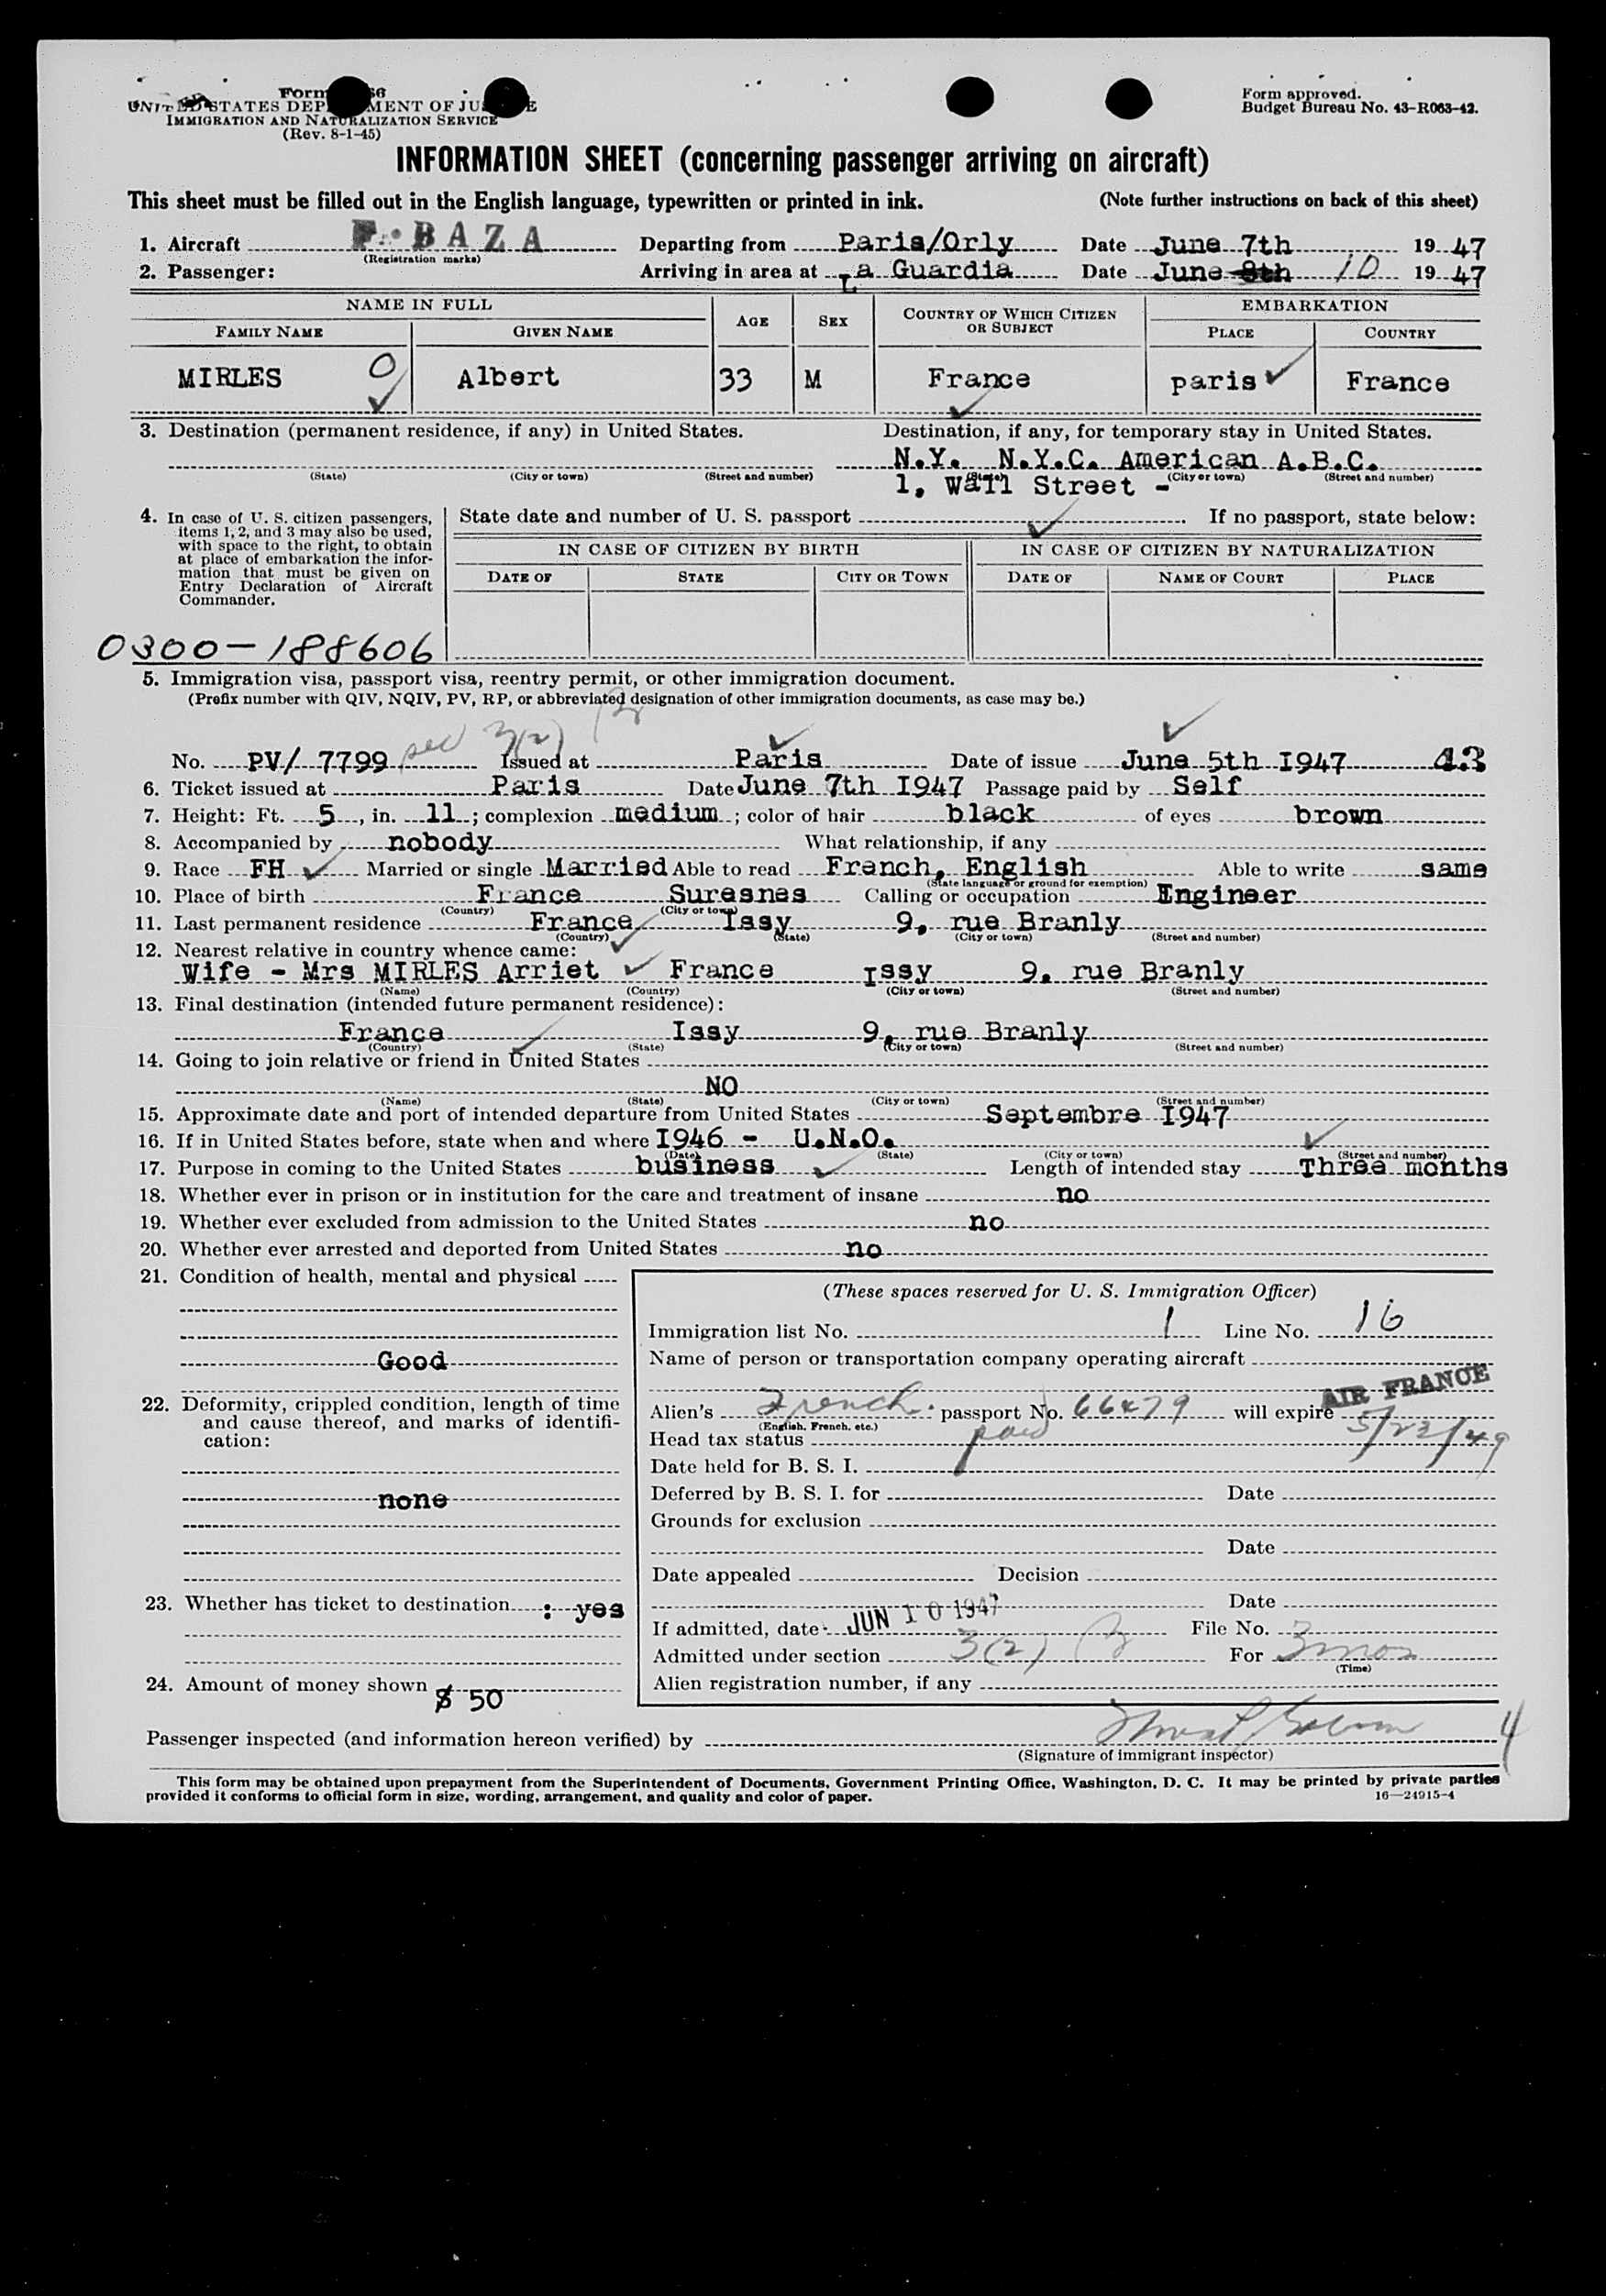 Form 66
UNITED STATES DEPARTMENT OF JUSTICE
IMMIGRATION AND NATURALIZATION SERVICE
(Rev. 8-1-45)
Form approved.
Budget Bureau No. 43-R063-42.
INFORMATION SHEET (concerning passenger arriving on aircraft)
This sheet must be filled out in the English language, typewritten or printed in ink. (Note further instructions on back of this sheet)
1. Aircraft F. BAZA Departing from Paris/Orly Date June 7th 19 47
(Registration marks)
2. Passenger: Arriving in area at La Guardia Date June 8th 10 19 47
NAME IN FULL AGE SEX COUNTRY OF WHICH CITIZEN OR SUBJECT EMBARKATION
FAMILY NAME GIVEN NAME PLACE COUNTRY
MIRLES O Albert 33 M France paris France
3. Destination (permanent residence, if any) in United States. Destination, if any, for temporary stay in United States.
N.Y. N.Y.C. American A.B.C.
(State) (City or town) (Street and number) (State) (City or town) (Street and number)
1, Wall Street -
4. In case of U. S. citizen passengers, items 1, 2, and 3 may also be used, with space to the right, to obtain at place of embarkation the information that must be given on Entry Declaration of Aircraft Commander.
State date and number of U. S. passport If no passport, state below:
IN CASE OF CITIZEN BY BIRTH IN CASE OF CITIZEN BY NATURALIZATION
DATE OF STATE CITY OR TOWN DATE OF NAME OF COURT PLACE
0300-188606
5. Immigration visa, passport visa, reentry permit, or other immigration document.
(Prefix number with QIV, NQIV, PV, RP, or abbreviated designation of other immigration documents, as case may be.)
No. PV/ 7799 sec 3(2) Issued at Paris Date of issue June 5th I947 43
6. Ticket issued at Paris Date June 7th I947 Passage paid by Self
7. Height: Ft. 5, in. 11; complexion medium; color of hair black of eyes brown
8. Accompanied by nobody What relationship, if any
9. Race FH Married or single Married Able to read French, English Able to write same
(State language or ground for exemption)
10. Place of birth France Suresnes Calling or occupation Engineer
(Country) (City or town)
11. Last permanent residence France Issy 9, rue Branly
(Country) (State) (City or town) (Street and number)
12. Nearest relative in country whence came:
Wife - Mrs MIRLES Arriet France Issy 9, rue Branly
(Name) (Country) (City or town) (Street and number)
13. Final destination (intended future permanent residence):
France Issy 9, rue Branly
(Country) (State) (City or town) (Street and number)
14. Going to join relative or friend in United States
NO
(Name) (State) (City or town) (Street and number)
15. Approximate date and port of intended departure from United States Septembre I947
16. If in United States before, state when and where I946 - U.N.O.
(Date) (State) (City or town) (Street and number)
17. Purpose in coming to the United States business Length of intended stay Three months
18. Whether ever in prison or in institution for the care and treatment of insane no
19. Whether ever excluded from admission to the United States no
20. Whether ever arrested and deported from United States no
21. Condition of health, mental and physical
Good
22. Deformity, crippled condition, length of time and cause thereof, and marks of identification:
none
23. Whether has ticket to destination : yes
24. Amount of money shown $ 50
(These spaces reserved for U. S. Immigration Officer)
Immigration list No. 1 Line No. 16
Name of person or transportation company operating aircraft
AIR FRANCE
Alien's French passport No. 66479 will expire 5/23/49
(English, French, etc.)
Head tax status paid
Date held for B. S. I.
Deferred by B. S. I. for Date
Grounds for exclusion
Date
Date appealed Decision
Date
If admitted, date JUN 10 1947 File No.
Admitted under section 3(2) For 3 mos
(Time)
Alien registration number, if any
4
Passenger inspected (and information hereon verified) by
(Signature of immigrant inspector)
This form may be obtained upon prepayment from the Superintendent of Documents, Government Printing Office, Washington, D. C. It may be printed by private parties
provided it conforms to official form in size, wording, arrangement, and quality and color of paper.
16—24915-4